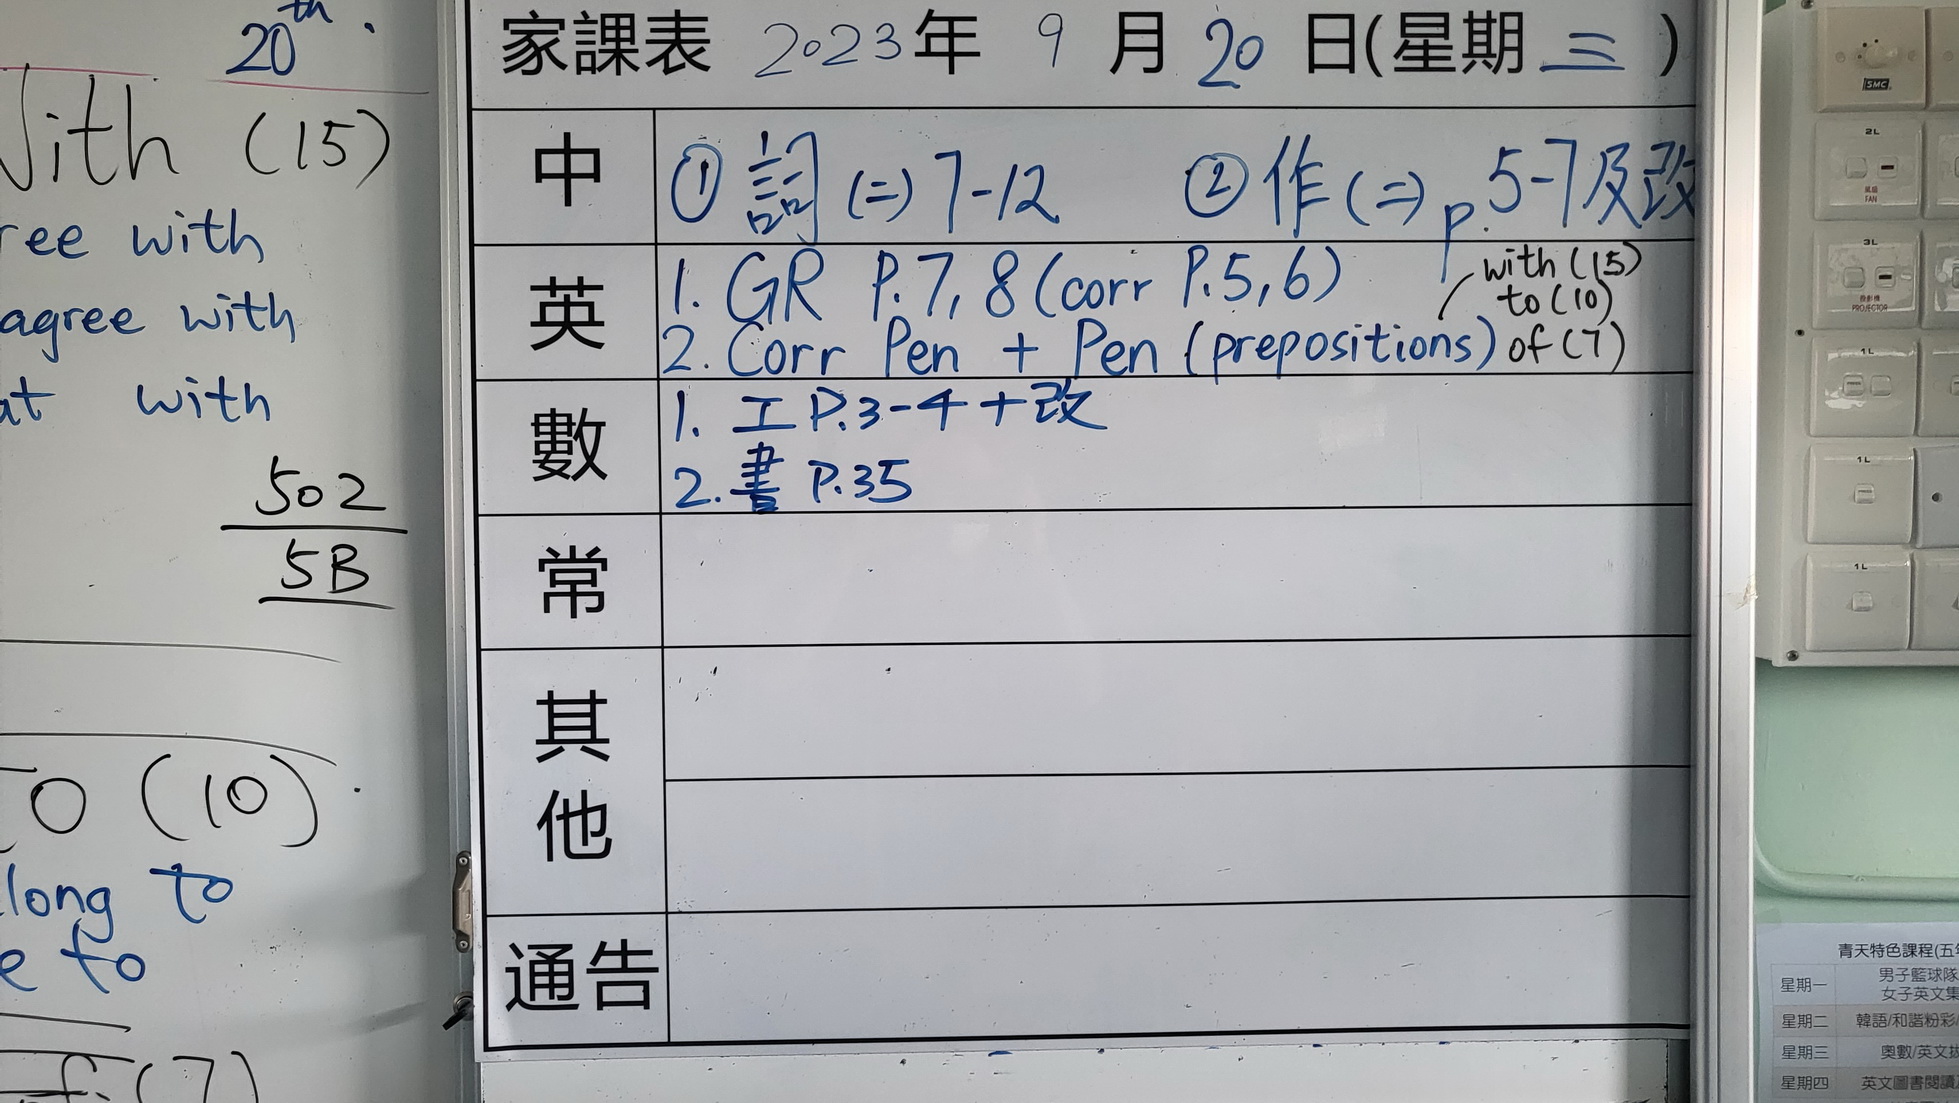 20th.
With (15)
ree with
agree with
at with
502
5B
TO (10).
long to
e to
of (7)
家課表 2023年 9月20日(星期三)
中
① 詞(二) 7-12 ② 作(二) p.5-7及改
英
1. GR P.7, 8 (corr P.5, 6)
2. Corr Pen + Pen (prepositions)
with (15)
to (10)
of (7)
數
1. 工 P.3-4+改
2. 書 P.35
常
其他
通告
SMC
2L
風扇
FAN
3L
投影機
PROJECTOR
1L
1L
1L
青天特色課程(五年
星期一 男子籃球隊
女子英文集
星期二 韓語/和諧粉彩/
星期三 奧數/英文拔
星期四 英文圖書閱讀